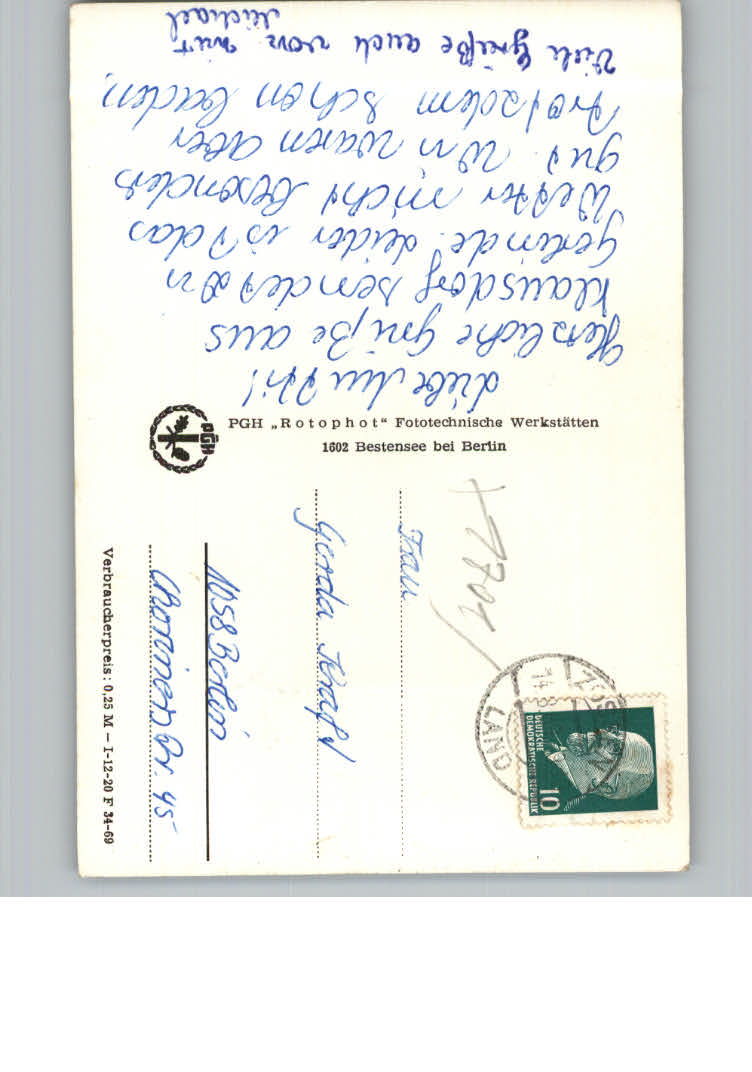 Liebe Mutti!
Herzliche Grüße aus
Klausdorf sendet Dir
Gerlinde. Leider ist das
Wetter nicht besonders
gut. Wir waren aber
trotzdem schon baden.
Viele Grüße auch von mir
Michael
PGH
PGH „Rotophot“ Fototechnische Werkstätten
1602 Bestensee bei Berlin
Frau
Gerda Kraft
1058 Berlin
45
Verbraucherpreis: 0,25 M — I-12-20 F 34-69
DEUTSCHE
DEMOKRATISCHE REPUBLIK
10